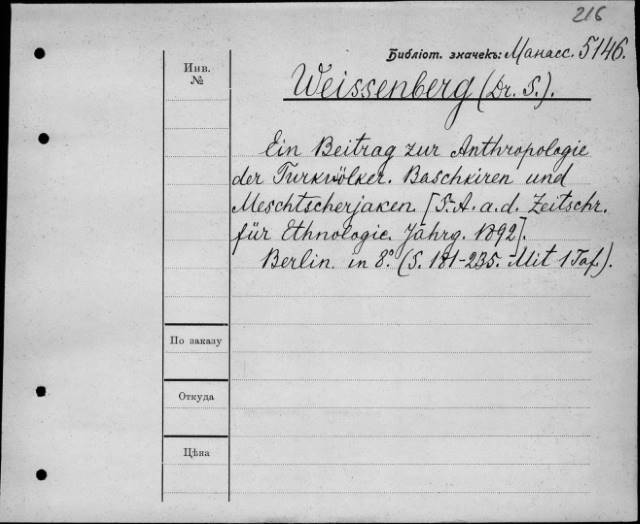 216
Библіот. значекъ: Манасс. 5146.
Инв.
№
Weissenberg (Dr. S.).
Ein Beitrag zur Anthropologie
der Turkvölker. Baschkiren und
Meschtscherjaken. [S.-A. a. d. Zeitschr.
für Ethnologie. Jahrg. 1892].
Berlin. in 8°. (S. 181-235. Mit 1 Taf.).
По заказу
Откуда
Цѣна